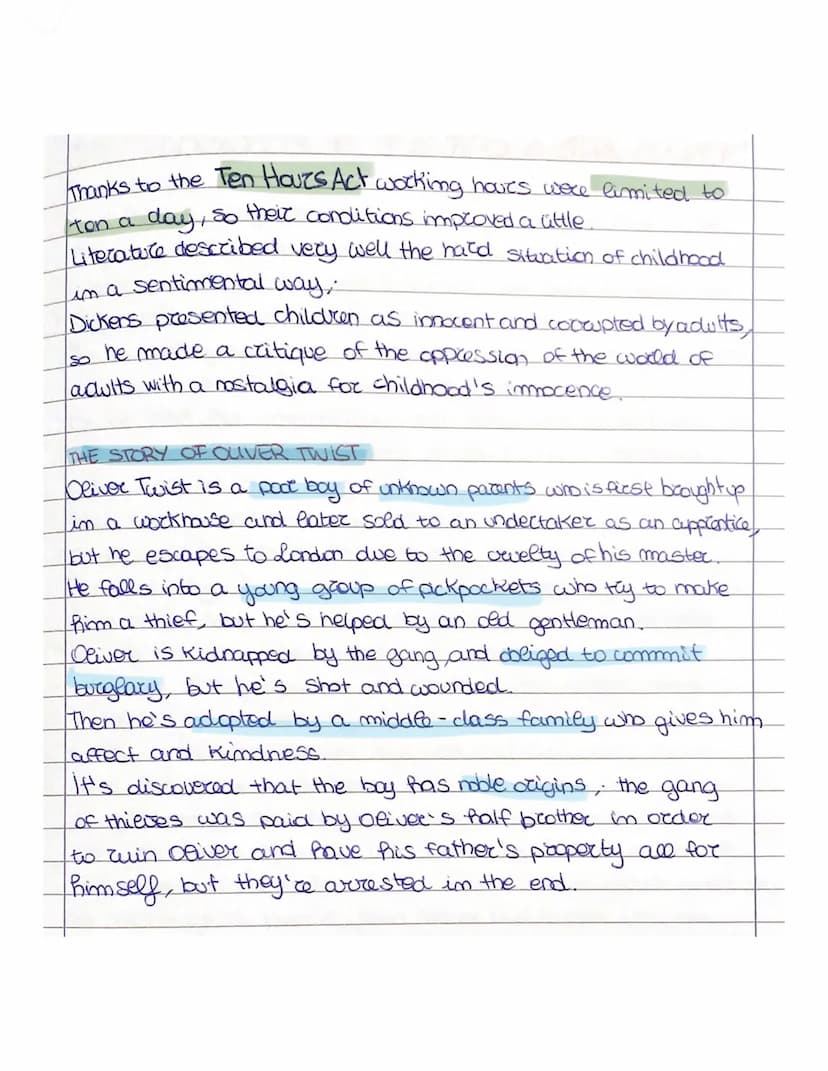 Thanks to the Ten Hours Act working hours were limited to
ten a day, so their conditions improved a little.
Literature described very well the hard situation of childhood
in a sentimental way;
Dickens presented children as innocent and corrupted by adults,
so he made a critique of the oppression of the world of
adults with a nostalgia for childhood's innocence.
THE STORY OF OLIVER TWIST
Oliver Twist is a poor boy of unknown parents who is first brought up
in a workhouse and later sold to an undertaker as an apprentice,
but he escapes to London due to the cruelty of his master.
He falls into a young group of pickpockets who try to make
him a thief, but he's helped by an old gentleman.
Oliver is kidnapped by the gang and obliged to commit
burglary, but he's shot and wounded.
Then he's adopted by a middle-class family who gives him
affect and kindness.
It's discovered that the boy has noble origins; the gang
of thieves was paid by Oliver's half brother in order
to ruin Oliver and have his father's property all for
himself, but they're arrested in the end.